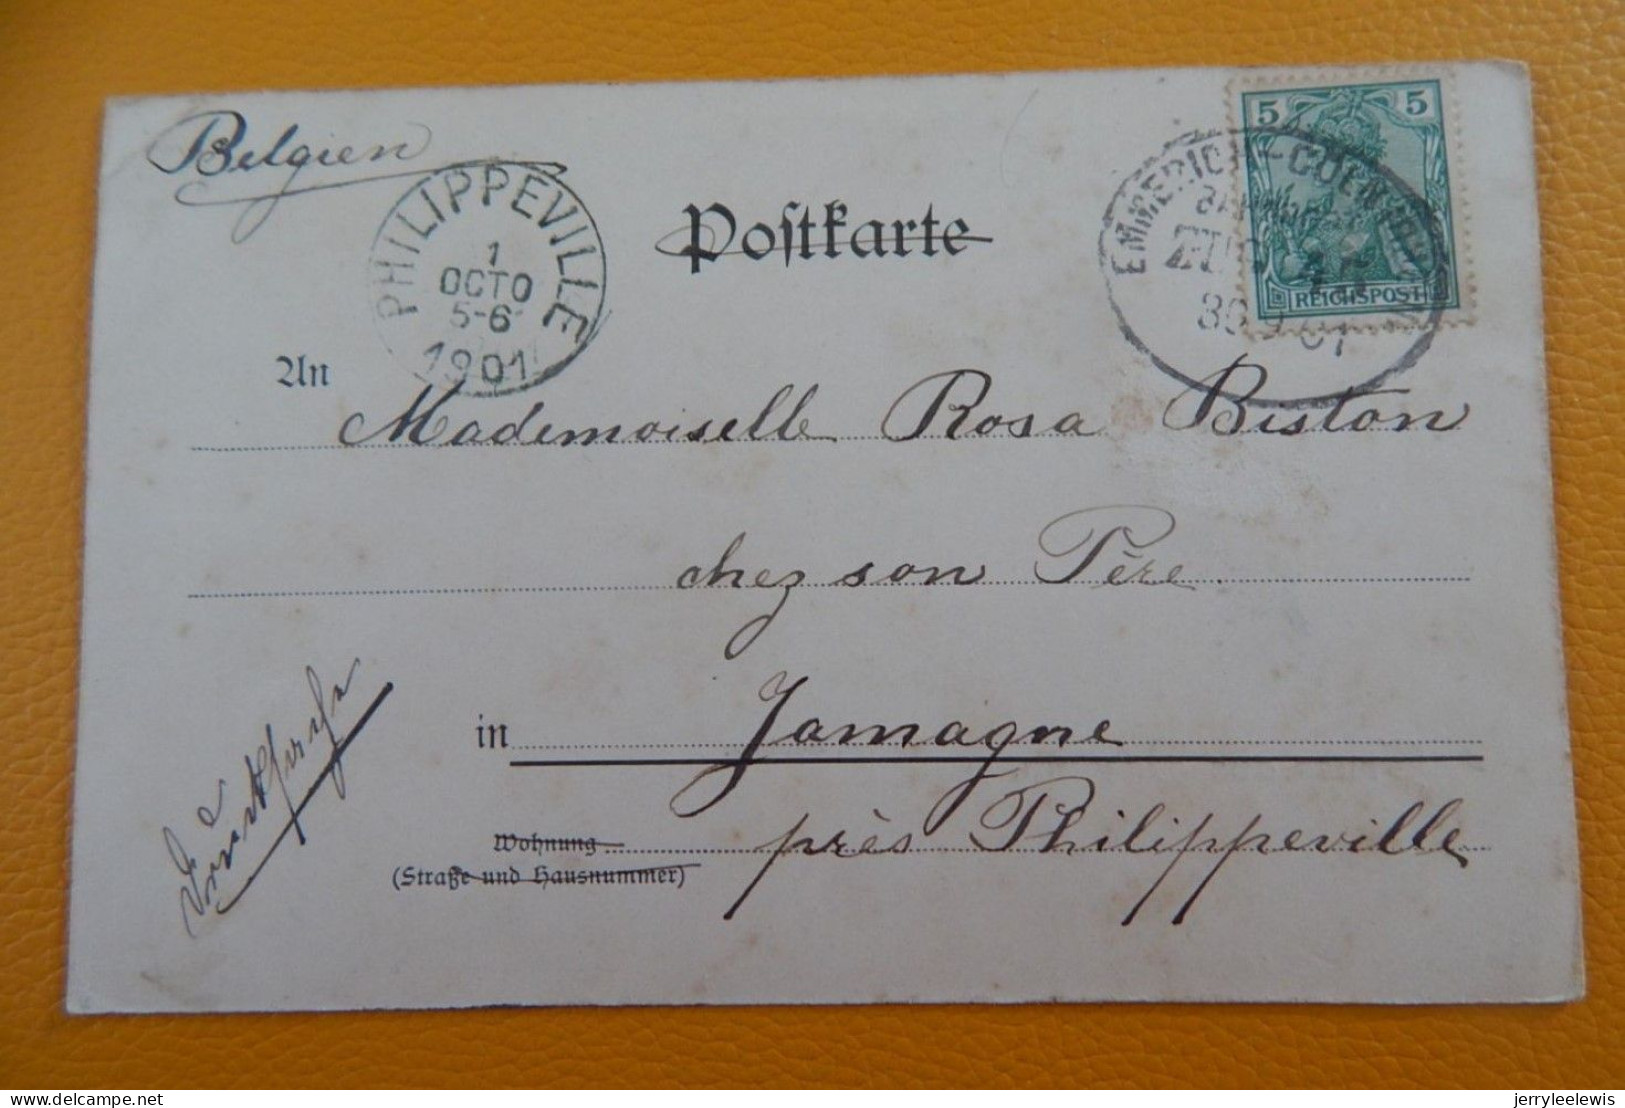 Belgien
PHILIPPEVILLE
1
OCTO
5-6
1901
Postkarte
5 5
REICHSPOST
EMMERICH-COELN
ZUG
An Mademoiselle Rosa Biston
chez son Père
in Jamagne
près Philippeville
Wohnung
(Straße und Hausnummer)
Drucksache
jerryleelewis